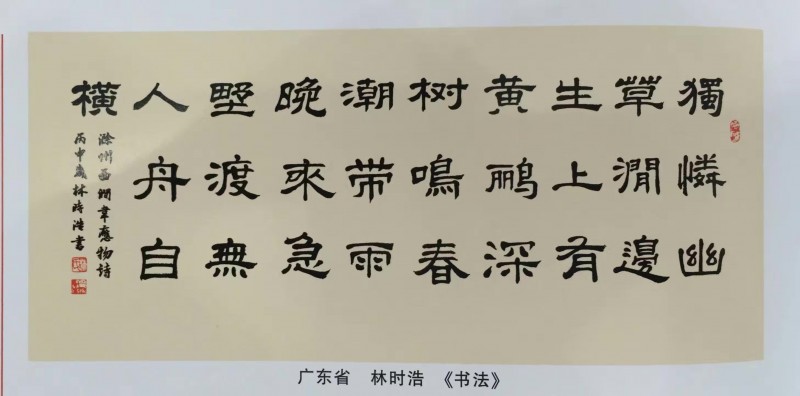 獨憐幽
草澗邊
生上有
黄鹂深
树鳴春
潮带雨
晚來急
墅渡無
人舟自
橫
滁州西澗韋應物詩
丙申歲林時浩書
广东省 林时浩 《书法》